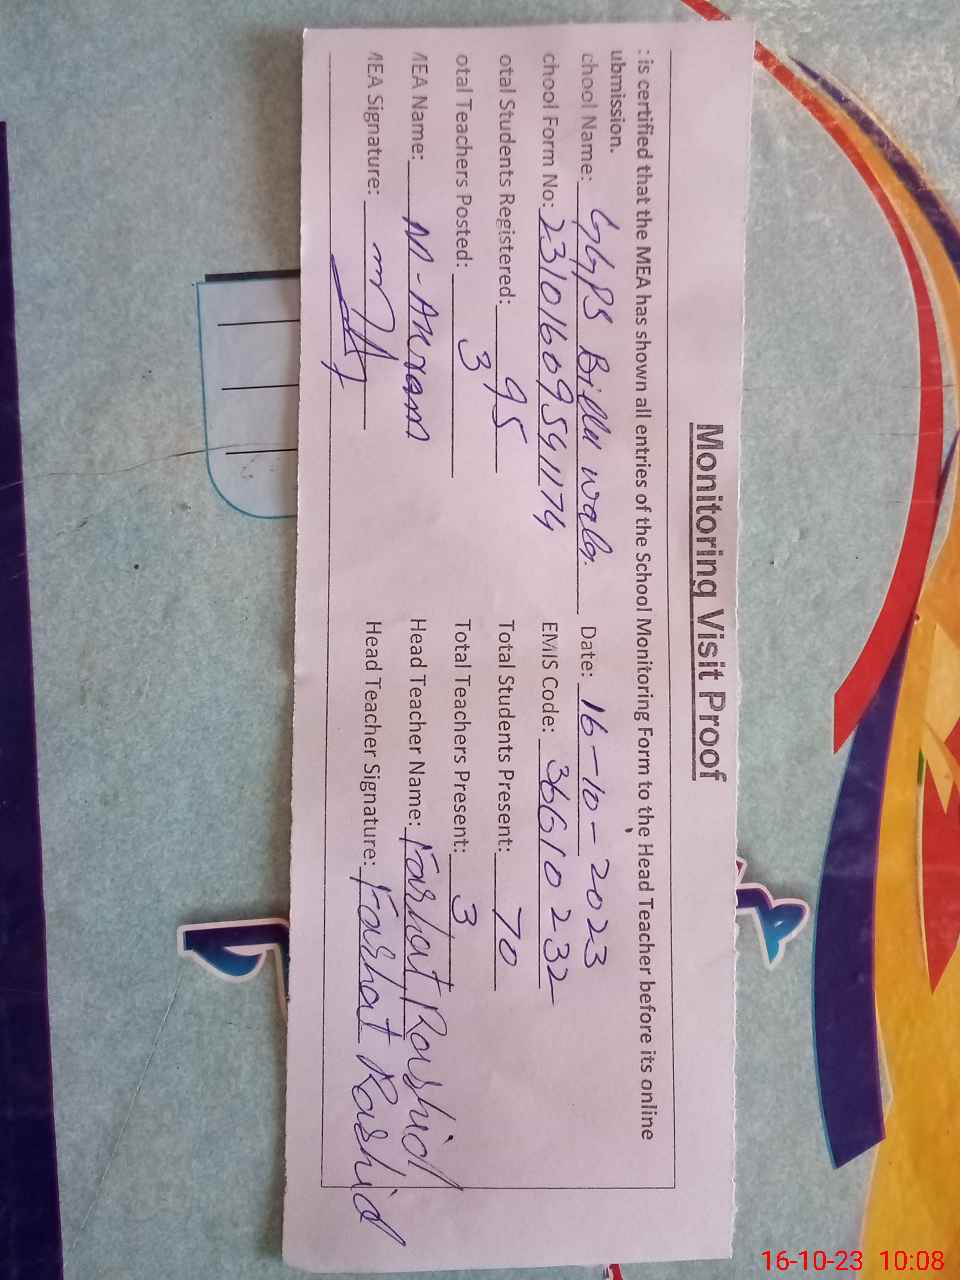 Monitoring Visit Proof
: is certified that the MEA has shown all entries of the School Monitoring Form to the Head Teacher before its online
ubmission.
chool Name: GGPS Billu wala. Date: 16-10-2023
chool Form No: 23101609541174 EMIS Code: 36610232
otal Students Registered: 95 Total Students Present: 70
otal Teachers Posted: 3 Total Teachers Present: 3
MEA Name: M-Akram Head Teacher Name: Farhat Rashid
MEA Signature: Head Teacher Signature: Farhat Rashid
16-10-23 10:08